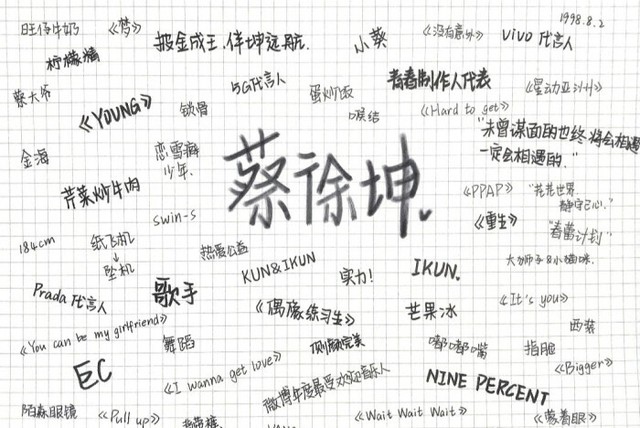 旺仔牛奶
《梦》
披金成王,伴坤远航.
小葵
《没有意外》
1998.8.2
vivo 代言人
柠檬精
5G代言人
青春制作人代表
《星动亚洲》
蔡大爷
《YOUNG》
锁骨
蛋炒饭
喉结
《Hard to get》
"未曾谋面的也终将会相遇
一定会相遇的."
金海
恋雪癖
少年.
芹菜炒牛肉
蔡徐坤
《PPAP》
"花花世界
静守己心."
swin-s
《重生》
"春蕾计划"
184cm
纸飞机
↓
坠机
热爱公益
大狮子&小猫咪.
KUN&IKUN
实力!
IKUN.
Prada 代言人
歌手
《偶像练习生》
芒果冰
《It's you》
西装
《You can be my girlfriend》
舞蹈
顶颜完美
嘟嘟嘟嘴
指甲
EC
《I wanna get love》
《Bigger》
微博年度最受欢迎音乐人
NINE PERCENT
陌森眼镜
《Pull up》
《Wait Wait Wait》
《蒙着眼》